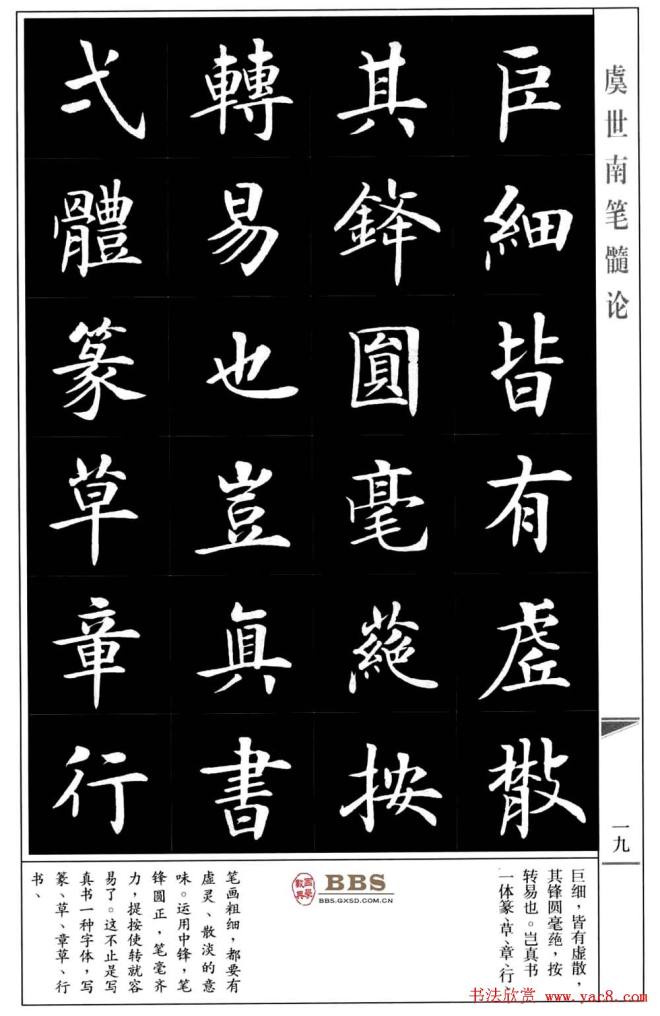 虞世南笔髓论
巨細皆有虛散
其鋒圓毫蕝按
轉易也豈真書
弌體篆草章行
一九
巨细，皆有虚散，
其锋圆毫蕝，按
转易也。岂真书
一体篆、草、章、行、
BBS
BBS.GXSD.COM.CN
笔画粗细，都要有
虚灵、散淡的意
味。运用中锋，笔
锋圆正，笔毫齐
力，提按使转就容
易了。这不止是写
真书一种字体，写
篆、草、章草、行
书、
书法欣赏 www.yac8.com